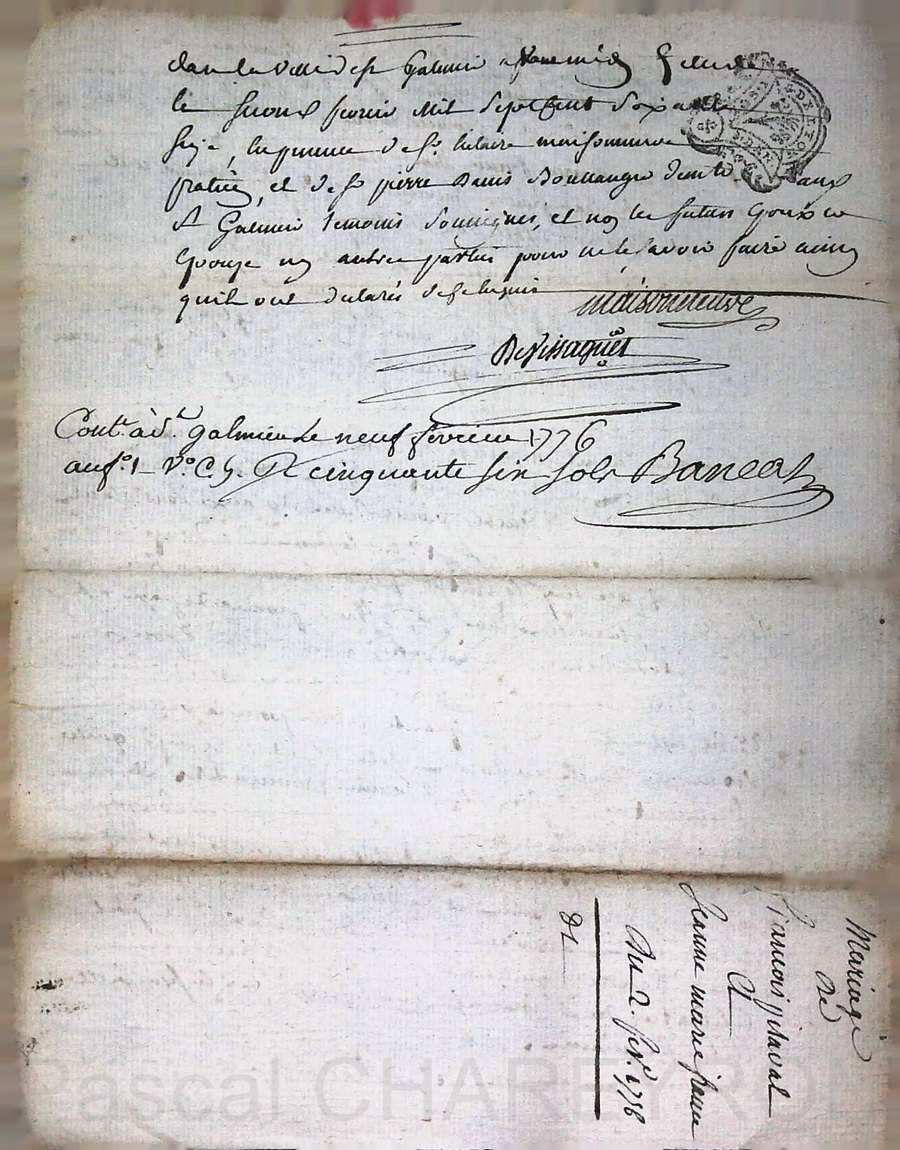 dans la ville de st Galmier
le second fevrier Mil Sept Cent Soixante
Seize, en presence de sr. hilaire maisonneuve
praticien, et de sr pierre Denis Boullanger demt. aud
st Galmier temoins Soussignes, et non les futurs Epoux
autres parties pour ne le savoir faire ainsy
quil ont declarés de ce Enquis
maisonneuve
Devissaguet
Contlé. à st. galmier Le neuf fevrier 1776
au fo. 1 Vo. C 5. R cinquante six sols Bancat
Mariage
De
francois pitaval
Et
Jeanne marie faure
Du 2. fev. 1776
81
Pascal CHAREYRON